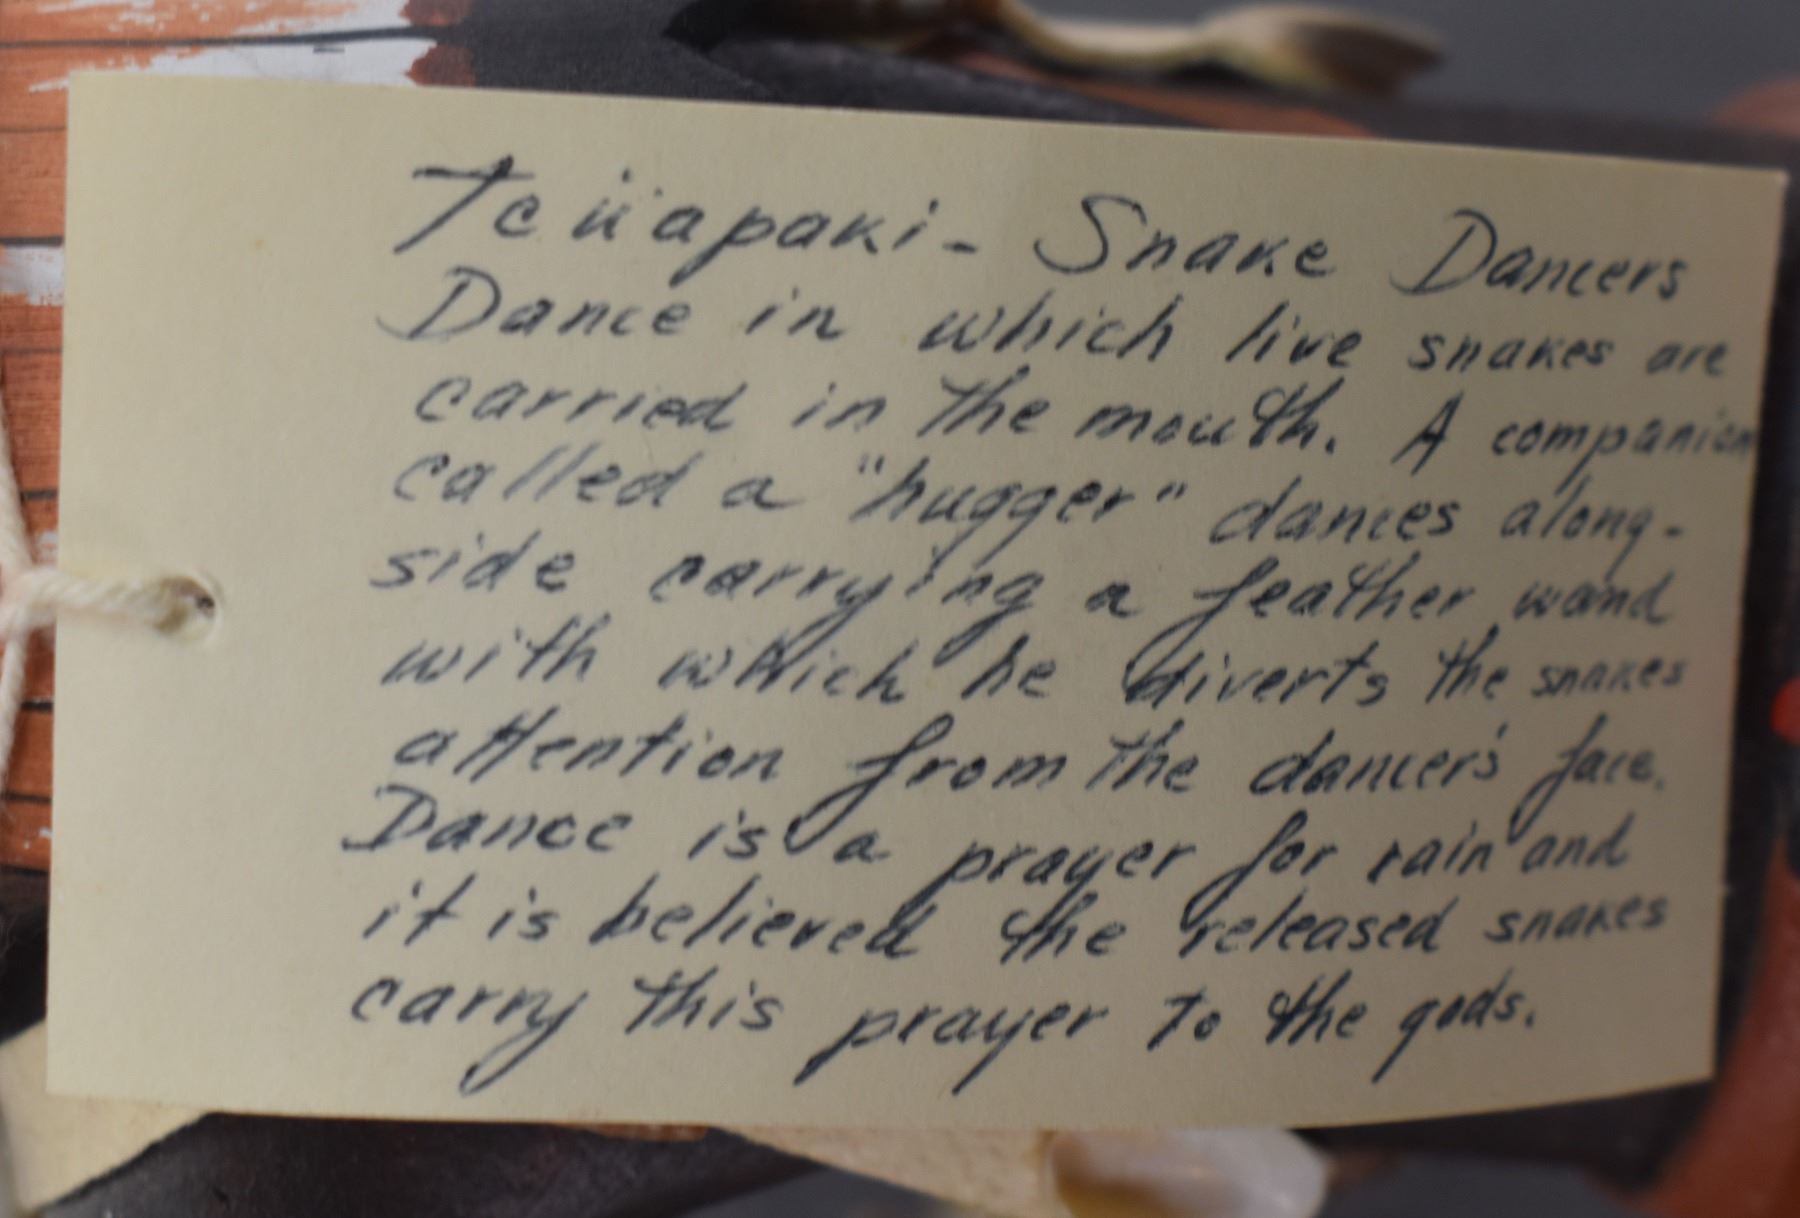 Tcüapaki - Snake Dancers
Dance in which live snakes are
carried in the mouth. A companion
called a "hugger" dances along-
side carrying a feather wand
with which he diverts the snakes
attention from the dancer's face.
Dance is a prayer for rain and
it is believed the released snakes
carry this prayer to the gods.